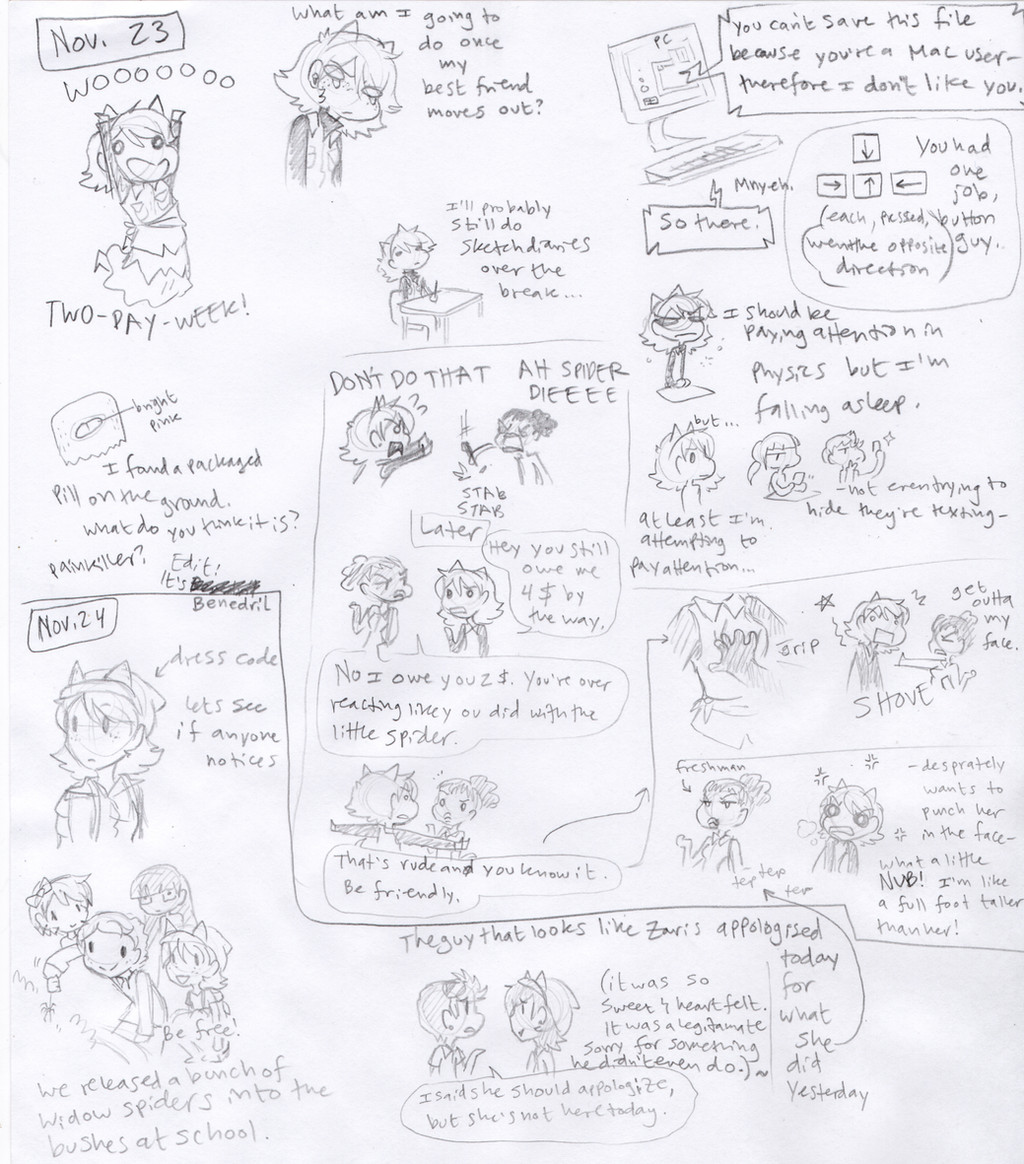 Nov. 23
WOOOOOOO
TWO-DAY-WEEK!
What am I going to
do once
my
best friend
moves out?
I'll probably
still do
sketchdiaries
over the
break...
PC
You can't save this file
because you're a Mac user-
therefore I don't like you.
Mnyeh.
So there.
↓
→ ↑ ←
You had
one
job,
button
guy..
(each, passed,
went the opposite
direction)
I should be
paying attention in
physics but I'm
falling asleep.
but...
at least I'm
attempting to
pay attention...
-not even trying to
hide they're texting-
bright
pink
I found a packaged
pill on the ground.
what do you think it is?
painkiller?
Edit!
It's
Benedril
DON'T DO THAT
AH SPIDER
DIEEEE
STAB
STAB
Later
Hey you still
owe me
4$ by
the way.
No I owe you 2$. You're over
reacting like you did with the
little spider.
That's rude and you know it.
Be friendly.
GRIP
get
outta
my
face.
SHOVE
freshman
tep tep
tep
-desprately
wants to
punch her
in the face-
what a little
NUB! I'm like
a full foot taller
than her!
Nov. 24
dress code
lets see
if anyone
notices
Be free!
We released a bunch of
widow spiders into the
bushes at school.
The guy that looks like Zaris appologised
today
for
what
she
did
yesterday
(it was so
sweet & heartfelt.
It was a legitamate
sorry for something
he didn't even do.)~
I said she should appologize,
but she's not here today.